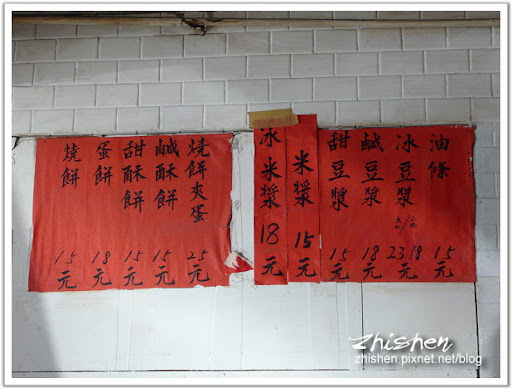 油條 15元
冰豆漿 大杯 23 小杯 18 元
鹹豆漿 18元
甜豆漿 15元
米漿 15元
冰米漿 18元
燒餅夾蛋 25元
鹹酥餅 15元
甜酥餅 15元
蛋餅 18元
燒餅 15元
zhishen
zhishen.pixnet.net/blog